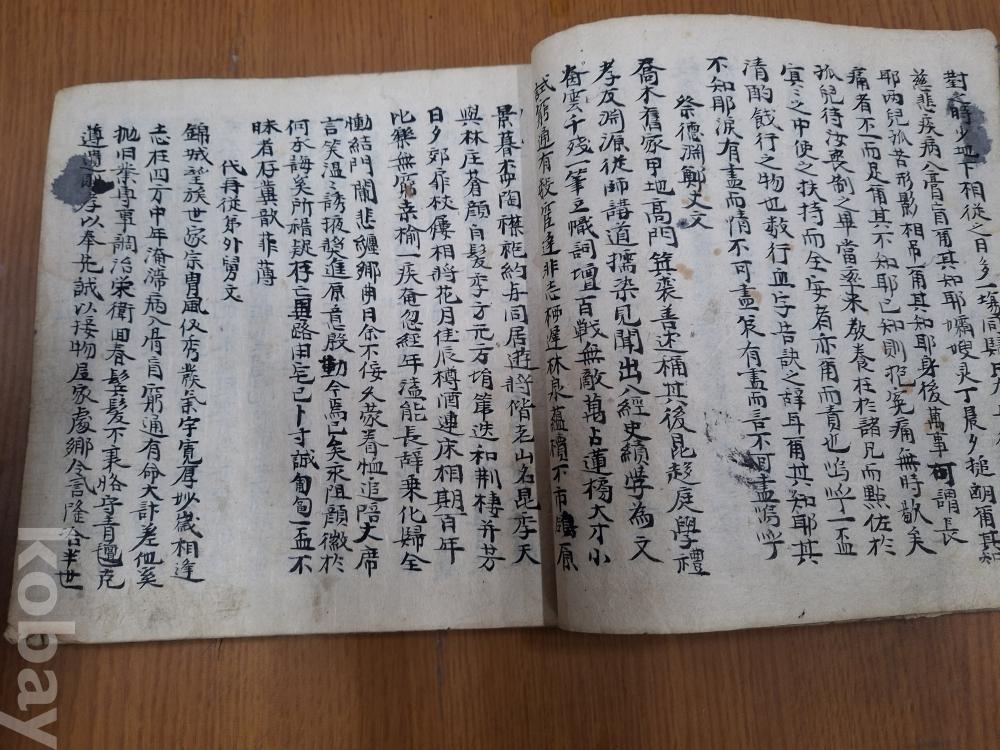 對之時少地下相從之日多一場同
慈悲疾病入膏肓甭其知耶孀嫂灵丁晨夕搥胷甭其
耶丙児孤苦形影相吊甭其知耶身後萬事何謂長
痛者不一而足甭其不知耶已知則抱寃痛無時歇矣
孤兒待汝喪制之畢當率来敎養在於諸兄而默佐於
冥冥之中使之扶持而全安者亦甭而責也嗚呼一盃
清酌餞行之物也數行血字告訣之辞耳甭其知耶其
不知耶淚有盡而情不可盡筆有盡而言不可盡嗚呼
祭德淵鄭丈文
喬木舊家甲地高門箕裘善述桶其後昆趍庭學禮
孝友淵源從師講道擩染見聞出入經史績學為文
雲千殘一筆立懺詞壇百戦無敵萬古蓮榜大才小
試窮通有數達非志栖遲林泉蘊櫝不市原
景暮 陶襟乾約与同居遊將偕老山名昆季天
與林庄蒼顔白髮季方元方埙箎迭和荆棲并芳
日夕郊扉杖屨相將花月佳辰樽酒連床相期百年
比樂無荒桑榆一疾奄忽經年溘能長辞乗化歸全
慟結門闌悲纏鄉曲日余不佞久蒙眷恤追陪丈席
言笑溫溫誘掖奬進原意慇勤今焉已矣永阻顔微於
何承誨矣所稽疑存亡異路用宅已卜寸誠匍匐一盃不
昧者存冀歆菲薄
代再從弟外舅文
錦城望族世家宗冑風仪秀發氣宇寛厚妙歲相逢
志在四方中年淹滯病入膏肓窮通有命大訃差池奚
抛旧業專事調治栄衛回春髭髮不衰恪守青氈克
遵遺 孝以奉先誠以接物居家處鄉令言隆洽半世
kobay